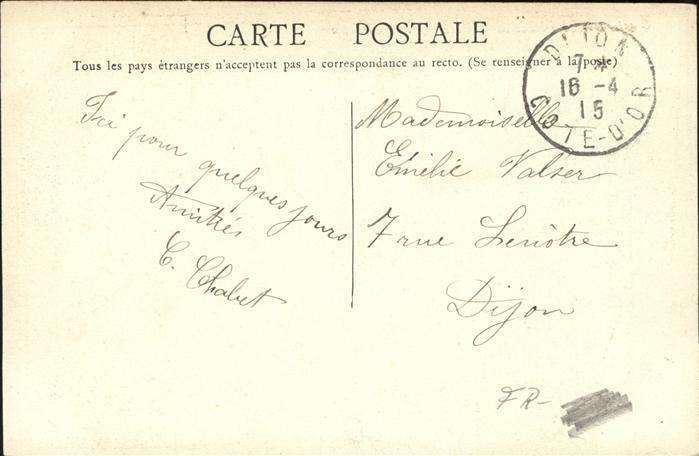 CARTE POSTALE
Tous les pays étrangers n'acceptent pas la correspondance au recto. (Se renseigner à la poste)
DIJON
7 *
16 -4
15
COTE-D'OR
Ici pour
quelques jours
Amitiés
C. Chabut
Mademoiselle
Emélie Valser
7 rue Lenôtre
Dijon
FR-